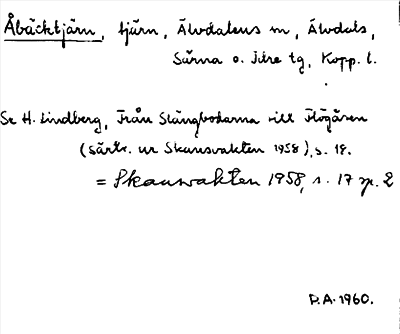 Åbäcktjärn, tjärn, Älvdalens sn, Älvdals,
Särna o. Idre tg, Kopp. l.
Se H. Lindberg, Från Stängbodarna till Flögåsen
(särtr. ur Skansvakten 1958), s. 18.
= Skansvakten 1958, s. 17 sp. 2
D.A. 1960.